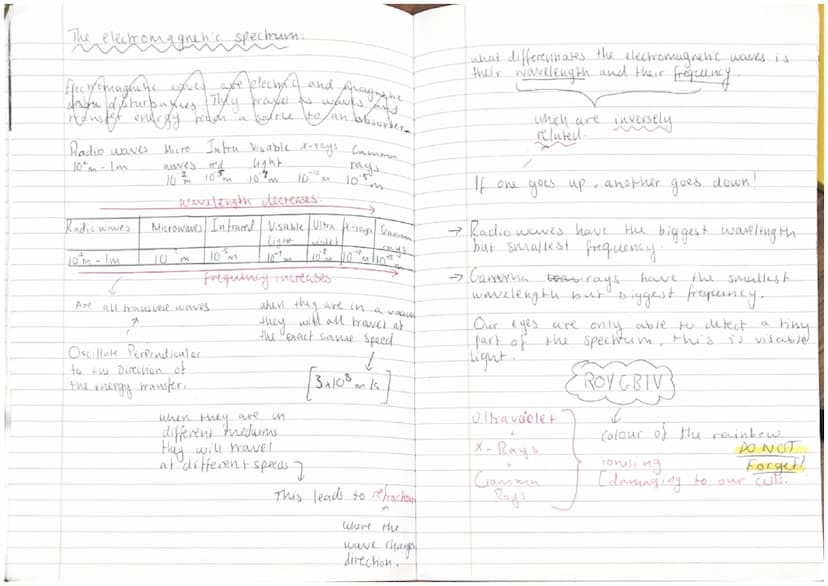 The electromagnetic spectrum:
Electromagnetic waves are electric and magnetic
disturbances. They travel as waves and
transfer energy from a source to an observer.
Radio waves Micro Infra Visable x-rays Gamma
10²m - 1m waves red light rays
10⁻²m 10⁻⁵m 10⁻⁷m 10⁻¹⁰m 10⁻¹⁵m
wavelength decreases
Radio waves Microwaves Infrared Visable light Ultra violet x-rays Gamma rays
10²m - 1m 10⁻²m 10⁻⁵m 10⁻⁷m 10⁻⁸m 10⁻¹⁰m
frequency increases
Are all transverse waves
Oscillate Perpendicular
to the Direction of
the energy transfer.
when they are in a
they will all travel at
the exact same speed
[3×10⁸ m/s]
when they are in
different mediums
they will travel
at different speeds
This leads to refraction
where the
wave changes
direction.
what differentiates the electromagnetic waves is
their wavelength and their frequency
which are inversely
related.
If one goes up, another goes down!
→ Radio waves have the biggest wavelength
but smallest frequency.
→ Gamma rays have the smallest
wavelength but biggest frequency.
Our eyes are only able to detect a tiny
part of the spectrum, this is visable
light.
ROYGBIV
colour of the rainbow
Ultraviolet
+
X-Rays
+
Gamma
Rays
ionising
[damaging to our cells.
DO NOT
Forget!